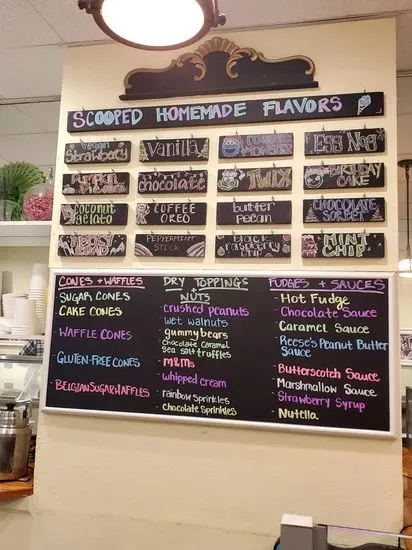 SCOOPED HOMEMADE FLAVORS
Vegan Strawberry
Vanilla
Cookie Monster
Egg Nog
Pumpkin
Chocolate
TWIX
BIRTHDAY CAKE
Coconut Gelato
COFFEE OREO
butter pecan
CHOCOLATE SORBET
MOOSE
PEPPERMINT STICK
black raspberry chip
MINT CHIP
CONES + WAFFLES
SUGAR CONES
CAKE CONES
WAFFLE CONES
GLUTEN-FREE CONES
BELGIAN SUGAR WAFFLES
DRY TOPPINGS
+
NUTS
- crushed peanuts
- wet walnuts
- gummy bears
- Chocolate Caramel
Sea Salt truffles
- m&ms
- whipped cream
- rainbow sprinkles
- chocolate sprinkles
FUDGES + SAUCES
- Hot Fudge
- Chocolate Sauce
- Caramel Sauce
- Reese's Peanut Butter
Sauce
- Butterscotch Sauce
- Marshmallow Sauce
- Strawberry Syrup
- Nutella